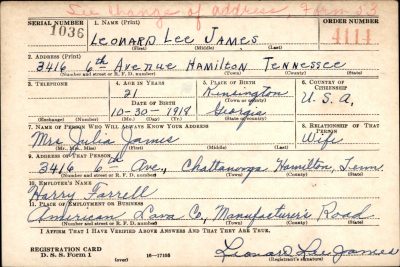 See change of address, Form 53
SERIAL NUMBER 1. NAME (Print) ORDER NUMBER
1036 LEONARD LEE JAMES 4114
(First) (Middle) (Last)
2. ADDRESS (Print)
3416 6th AVENUE HAMILTON TENNESSEE
(Number and street or R. F. D. number) (Town) (County) (State)
3. TELEPHONE 4. AGE IN YEARS 5. PLACE OF BIRTH 6. COUNTRY OF CITIZENSHIP
21 Kensington
DATE OF BIRTH (Town or county) U. S. A.
10-30-1918 Georgia
(Exchange) (Number) (Mo.) (Day) (Yr.) (State or country)
7. NAME OF PERSON WHO WILL ALWAYS KNOW YOUR ADDRESS 8. RELATIONSHIP OF THAT PERSON
Mrs Julia James Wife
(Mr., Mrs., Miss) (First) (Middle) (Last)
9. ADDRESS OF THAT PERSON
3416 6th Ave., Chattanooga Hamilton, Tenn
(Number and street or R. F. D. number) (Town) (County) (State)
10. EMPLOYER'S NAME
Harry Farrell
11. PLACE OF EMPLOYMENT OR BUSINESS
American Lava Co, Manufacturer's Road
(Number and street or R. F. D. number) (Town) (County) (State)
I AFFIRM THAT I HAVE VERIFIED ABOVE ANSWERS AND THAT THEY ARE TRUE.
REGISTRATION CARD
D. S. S. Form 1 (over) 16—17105 Leonard Lee James
(Registrant's signature)